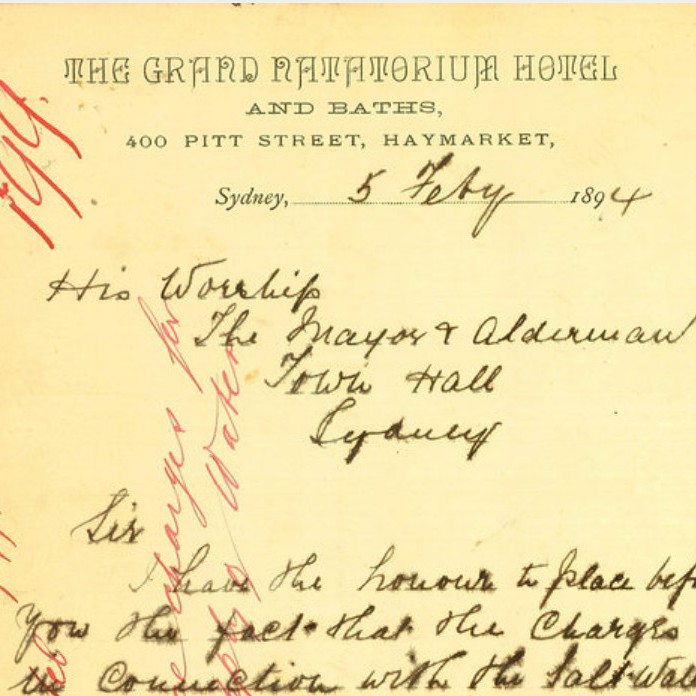 THE GRAND NATATORIUM HOTEL
AND BATHS,
400 PITT STREET, HAYMARKET,
Sydney, 5 Feby 1894
His Worship
The Mayor & Alderman
Town Hall
Sydney
Sir
I have the honour to place bef
You the fact that the Charges
in Connection with the Salt Wat
charges for
Water